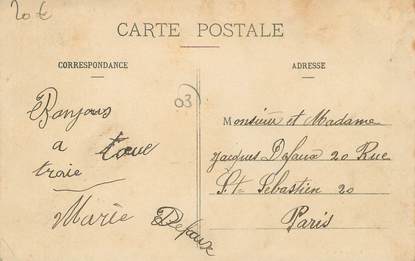 20 €
CARTE POSTALE
CORRESPONDANCE
ADRESSE
03
Bonjous
a toue
troie
Marie Defaux
Monsieur et Madame
Jacques Defaux 20 Rue
St Sébastien 20
Paris